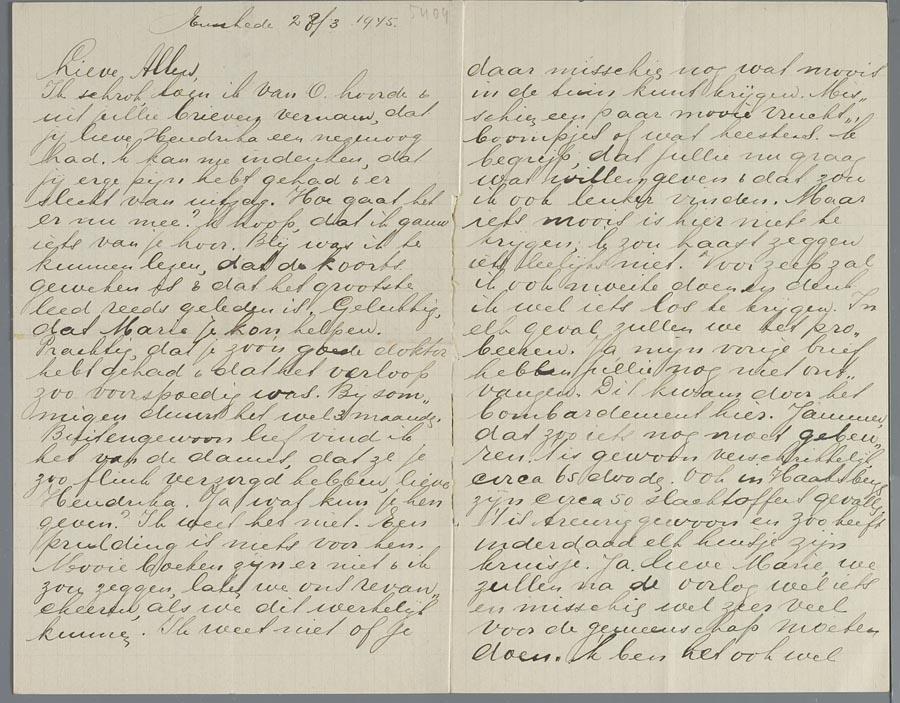 Enschede 28/3 1945.
5404
Lieve Allen,
Ik schrok toen ik van O. hoorde &
uit jullie brieven vernam, dat
jij lieve Hendrika een negenoog
had. Ik kan me indenken, dat
jij erge pijn hebt gehad & er
slecht van uitzag. Hoe gaat het
er nu mee? Ik hoop, dat ik gauw
iets van je hoor. Blij was ik te
kunnen lezen, dat de koorts
geweken is & dat het grootste
leed reeds geleden is. Gelukkig,
dat Marie je kon helpen.
Prachtig, dat je zoo'n goede dokter
hebt gehad & dat het verloop
zoo voorspoedig was. Bij som„
migen duurt het wel 3 maanden.
Buitengewoon lief vind ik
het van de dames, dat ze je
zoo flink verzorgd hebben, lieve
Hendrika. Ja, wat kun je hen
geven? Ik weet het niet. Een
prulding is niets voor hen.
Mooie boeken zijn er niet & ik
zou zeggen, laten we ons revan„
cheeren, als we dit werkelijk
kunnen. Ik weet niet of je
daar misschien nog wat moois
in de tuin kunt krijgen. Mis„
schien een paar mooie vrucht„
boompjes of wat heesters. Ik
begrijp, dat jullie nu graag
wat willen geven & dat zou
ik ook leuker vinden. Maar
iets moois is hier niet te
krijgen, ik zou haast zeggen
iets leelijks niet. Voor zeep zal
ik ook moeite doen en denk
ik wel iets los te krijgen. In
elk geval zullen we het pro„
beeren. Ja mijn vorige brief
hebben jullie nog niet ont„
vangen. Dit kwam door het
bombardement hier. Jammer,
dat zooiets nog moet gebeu„
ren. 't is gewoon verschrikkelijk
circa 65 doode. Ook in Haaksbergen
zijn circa 50 slachtoffers gevallen.
't Is treurig gewoon en zoo heeft
inderdaad elk huisje zijn
kruisje. Ja, lieve Marie, we
zullen na de oorlog wel iets
en misschien wel zeer veel
voor de gemeenschap moeten
doen. Ik ben het ook wel